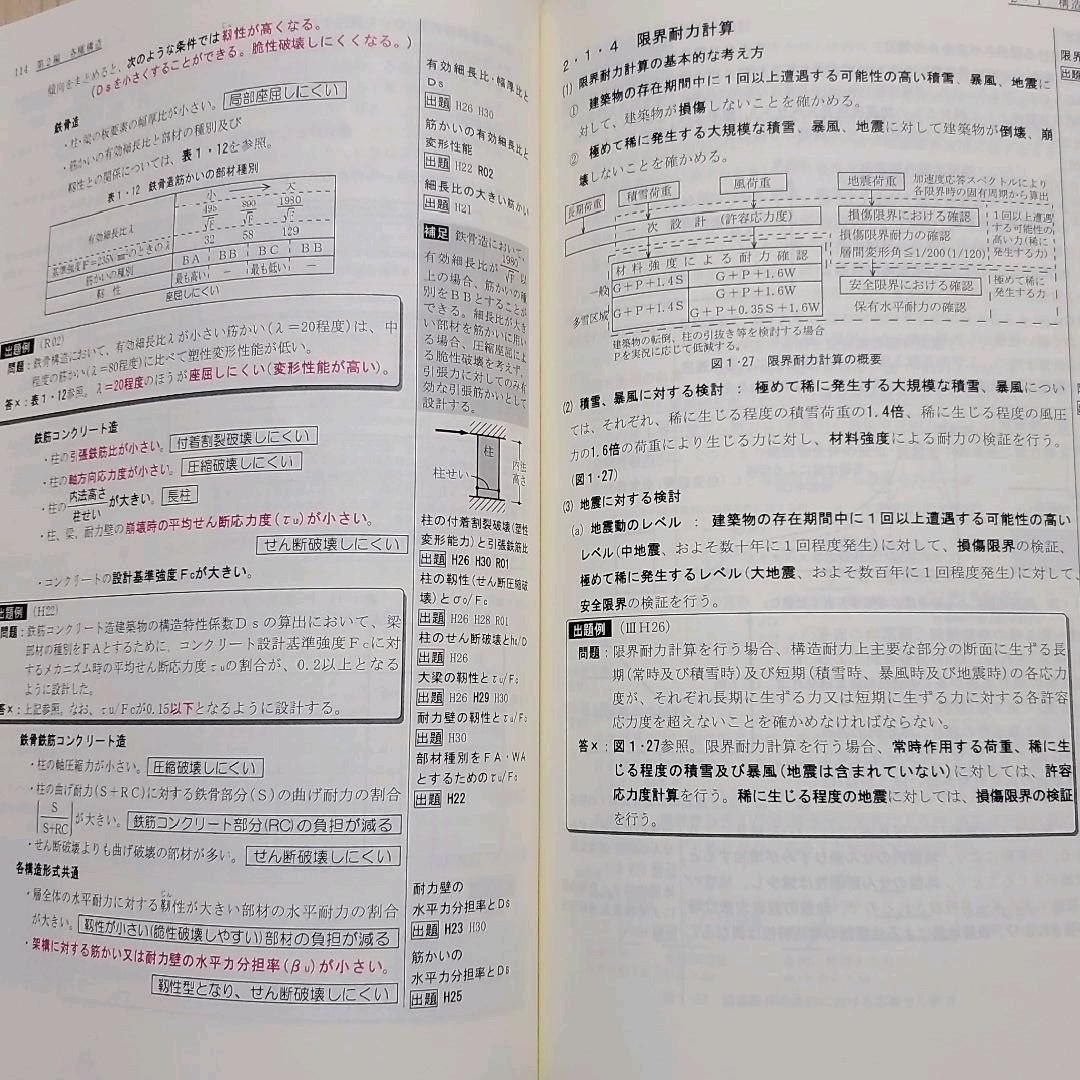 114 第2編 各種構造
傾向をまとめると、次のような条件では靱性が高くなる。
(Dsを小さくすることができる。脆性破壊しにくくなる。)
鉄骨造
・柱・梁の板要素の幅厚比が小さい。 局部座屈しにくい
・筋かいの有効細長比と部材の種別及び
靱性との関係については、表1・12を参照。
表1・12 鉄骨造筋かいの部材種別
有効細長比λ
小 → 大
495/√F 890/√F 1980/√F
基準強度F=235N/mm²のときのλ 32 58 129
筋かいの種別 BA BB BC BB
靱性 最も高い － 最も低い －
座屈しにくい
出題例 (R02)
問題:鉄骨構造において、有効細長比λが小さい筋かい(λ=20程度)は、中
程度の筋かい(λ=80程度)に比べて塑性変形性能が低い。
答×:表1・12参照。λ=20程度のほうが座屈しにくい(変形性能が高い)。
鉄筋コンクリート造
・柱の引張鉄筋比が小さい。 付着割裂破壊しにくい
・柱の軸方向応力度が小さい。 圧縮破壊しにくい
・柱の 内法高さ/柱せい が大きい。 長柱
・柱、梁、耐力壁の崩壊時の平均せん断応力度(τu)が小さい。
せん断破壊しにくい
・コンクリートの設計基準強度Fcが大きい。
出題例 (H22)
問題:鉄筋コンクリート造建築物の構造特性係数Dsの算出において、梁
部材の種別をFAとするために、コンクリート設計基準強度Fcに対
するメカニズム時の平均せん断応力度τuの割合が、0.2以上となる
ように設計した。
答×:上記参照。なお、τu/Fcが0.15以下となるように設計する。
鉄骨鉄筋コンクリート造
・柱の軸圧縮力が小さい。 圧縮破壊しにくい
・柱の曲げ耐力(S+RC)に対する鉄骨部分(S)の曲げ耐力の割合
|S/S+RC| が大きい。 鉄筋コンクリート部分(RC)の負担が減る
・せん断破壊よりも曲げ破壊の部材が多い。 せん断破壊しにくい
各構造形式共通
・層全体の水平耐力に対する靱性が大きい部材の水平耐力の割合
が大きい。 靱性が小さい(脆性破壊しやすい)部材の負担が減る
・架構に対する筋かい又は耐力壁の水平力分担率(βu)が小さい。
靱性型となり、せん断破壊しにくい
有効細長比・幅厚比と
Ds
出題 H26 H30
筋かいの有効細長比と
変形性能
出題 H22 R02
細長比の大きい筋かい
出題 H21
補足 鉄骨造において、
有効細長比が1980/√F以
上の場合、筋かいの種
別をBBとすることが
できる。細長比が大き
い部材を筋かいに用い
る場合、圧縮座屈によ
る脆性破壊を考えず、
引張力に対してのみ有
効な引張筋かいとして
設計する。
柱
柱せい
内法高さ
柱の付着割裂破壊(塑性
変形能力)と引張鉄筋比
出題 H26 H30 R01
柱の靱性(せん断圧縮破
壊)とσ₀/Fc
出題 H26 H28 R01
柱のせん断破壊とh₀/D
出題 H26
大梁の靱性とτu/Fc
出題 H26 H29 H30
耐力壁の靱性とτu/Fc
出題 H30
部材種別をFA・WA
とするためのτu/Fc
出題 H22
耐力壁の
水平力分担率とDs
出題 H23 H30
筋かいの
水平力分担率とDs
出題 H25
2・1 構造
2・1・4 限界耐力計算
(1) 限界耐力計算の基本的な考え方
① 建築物の存在期間中に1回以上遭遇する可能性の高い積雪、暴風、地震に
対して、建築物が損傷しないことを確かめる。
② 極めて稀に発生する大規模な積雪、暴風、地震に対して建築物が倒壊、崩
壊しないことを確かめる。
長期荷重 積雪荷重 風荷重 地震荷重
加速度応答スペクトルにより
各限界時の固有周期から算出
一次設計(許容応力度)
損傷限界における確認
損傷限界耐力の確認
層間変形角≦1/200(1/120)
1回以上遭遇
する可能性の
高い力(稀に
発生する力)
材料強度による耐力確認
一般 G+P+1.4S G+P+1.6W
多雪区域 G+P+1.4S G+P+1.6W
G+P+0.35S+1.6W
安全限界における確認
保有水平耐力の確認
極めて稀に
発生する力
建築物の転倒、柱の引抜き等を検討する場合
Pを実況に応じて低減する。
図1・27 限界耐力計算の概要
(2) 積雪、暴風に対する検討 : 極めて稀に発生する大規模な積雪、暴風につい
ては、それぞれ、稀に生じる程度の積雪荷重の1.4倍、稀に生じる程度の風圧
力の1.6倍の荷重により生じる力に対し、材料強度による耐力の検証を行う。
(図1・27)
(3) 地震に対する検討
(a) 地震動のレベル : 建築物の存在期間中に1回以上遭遇する可能性の高い
レベル(中地震、およそ数十年に1回程度発生)に対して、損傷限界の検証、
極めて稀に発生するレベル(大地震、およそ数百年に1回程度発生)に対して、
安全限界の検証を行う。
出題例 (ⅢH26)
問題:限界耐力計算を行う場合、構造耐力上主要な部分の断面に生ずる長
期(常時及び積雪時)及び短期(積雪時、暴風時及び地震時)の各応力
度が、それぞれ長期に生ずる力又は短期に生ずる力に対する各許容
応力度を超えないことを確かめなければならない。
答×:図1・27参照。限界耐力計算を行う場合、常時作用する荷重、稀に生
じる程度の積雪及び暴風(地震は含まれていない)に対しては、許容
応力度計算を行う。稀に生じる程度の地震に対しては、損傷限界の検証
を行う。